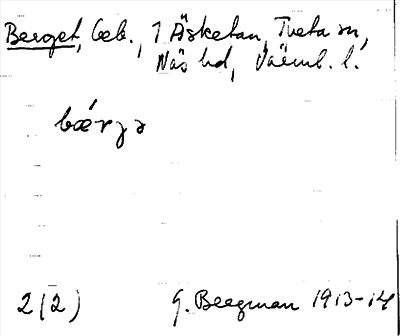 Berget, Geb., 1 Äsketan, Tveta sn,
Näs hd, Värml. l.
bǽrʒə
2(2) G. Bergman 1913-14